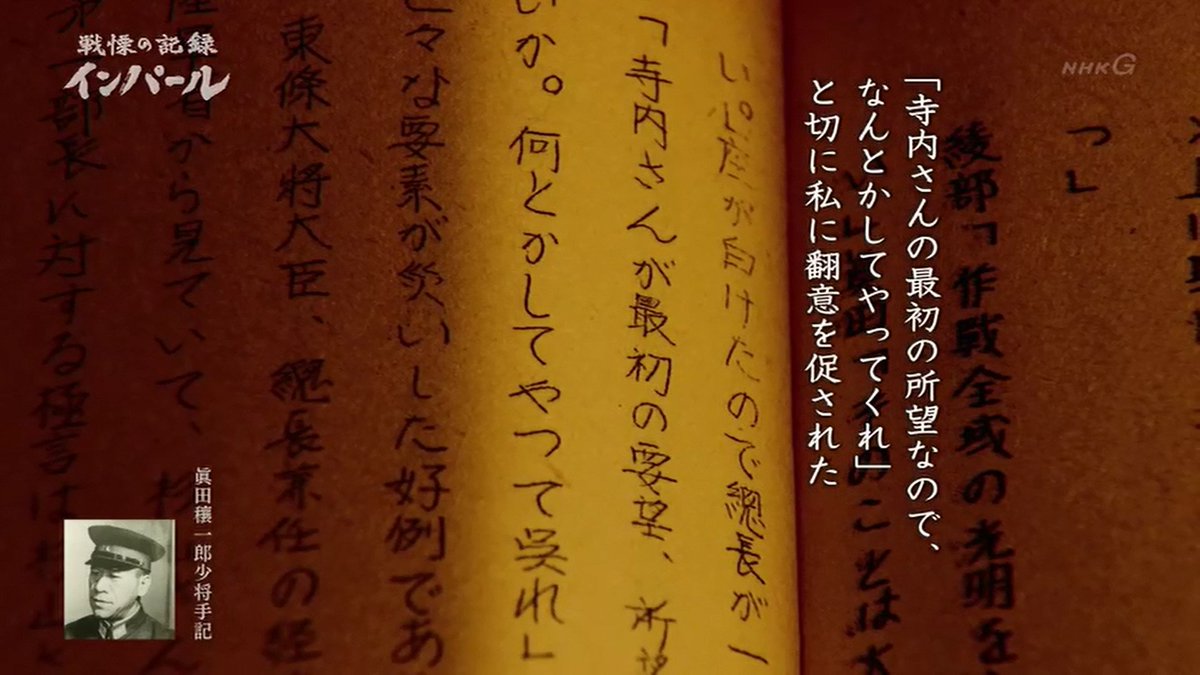 戦慄の記録
インパール
NHKG
「寺内さんの最初の所望なので、
なんとかしてやってくれ」
と切に私に翻意を促された
っ」
綾部「作戦全或の光明を
のことは大
座が白けたので總長が一
「寺内さんが最初の要望、
いか。何とかしてやつて呉れ」
々な要素が災いした好例であ
東條大将大臣、總長兼任の
から見ていて、
部長に対する極言は
眞田穰一郎少将手記